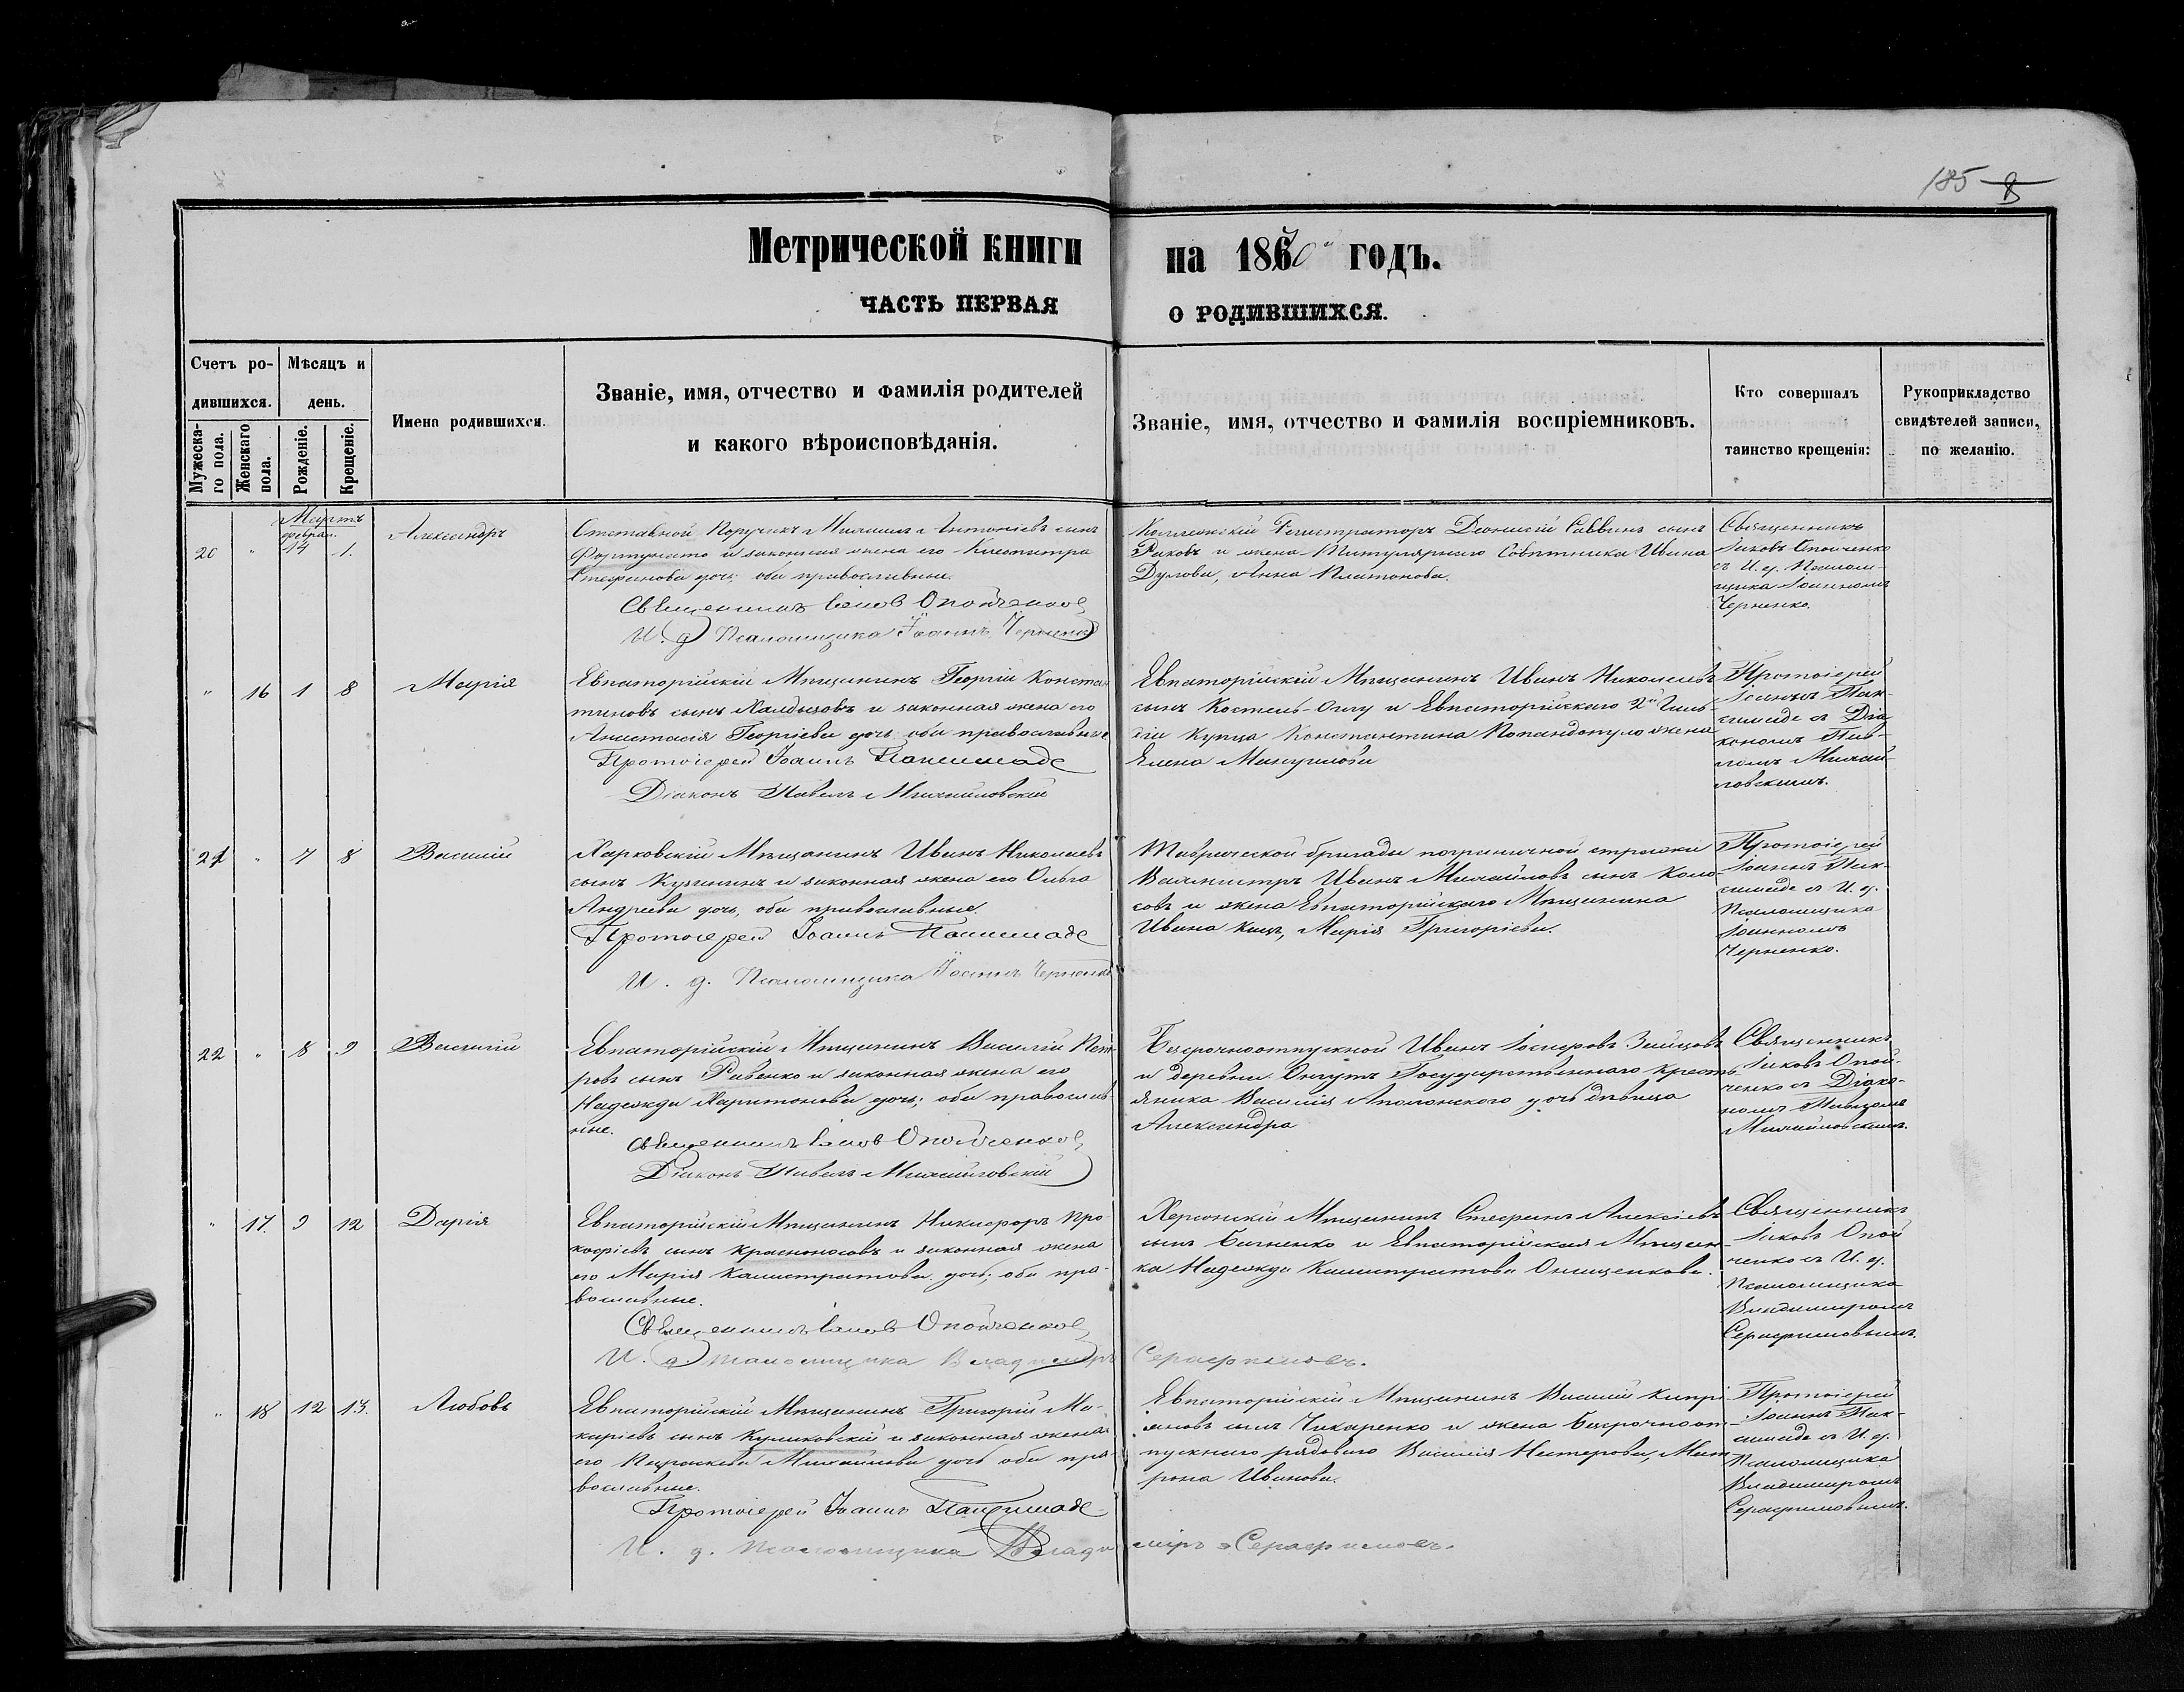 185
8
Метрической книги на 1870 годъ.
ЧАСТЬ ПЕРВАЯ О РОДИВШИХСЯ.
Счетъ ро-
дившихся.
Мужеска-
го пола.
Женскаго
пола.
Мѣсяцъ и
день.
Рожденіе.
Крещеніе.
Имена родившихся.
Званіе, имя, отчество и фамилія родителей
и какого вѣроисповѣданія.
Званіе, имя, отчество и фамилія воспріемниковъ.
Кто совершалъ
таинство крещенія:
Рукоприкладство
свидѣтелей записи,
по желанію.
Мартъ
феврал.
20 " 14 1.
Александръ
Отставной Поручикъ Михаилъ Антоніевъ сынъ
Фортунато и законная жена его Клеопатра
Стефанова дочь; оба православные.
Священникъ Іаковъ Опойченко
И. д. Псаломщика Іоаннъ Черненко
Коллежскій Регистраторъ Діонисій Саввинъ сынъ
Раковъ и жена Титулярнаго Совѣтника Ивана
Дулова, Анна Платонова.
Священникъ
Іаковъ Опойченко
съ И. д. Псалом-
щика Іоанномъ
Черненко.
" 16 1 8
Марія
Евпаторійскій Мѣщанинъ Георгій Конста-
тиновъ сынъ Халдызовъ и законная жена его
Анастасія Георгіева дочь оба православные
Протоіерей Іоаннъ Паксимаде
Діаконъ Павелъ Михайловскій
Евпаторійскій Мѣщанинъ Иванъ Николаевъ
сынъ Костель-Оглу и Евпаторійскаго 2й Гиль-
діи Купца Константина Попандопуло жена
Елена Мануилова
Протоіерей
Іоаннъ Пак-
симаде съ Діа-
кономъ Пав-
ломъ Михай-
ловскимъ.
21 " 7 8
Василій
Харковскій Мѣщанинъ Иванъ Николаевъ
сынъ Кузнинъ и законная жена его Ольга
Андреева дочь, оба православные.
Протоіерей Іоаннъ Паксимаде
И. д. Псаломщика Іоаннъ Черненко
Таврической бригады пограничной стражи
Вахмистръ Иванъ Михайловъ сынъ Коло-
совъ и жена Евпаторійскаго Мѣщанина
Ивана Кицъ, Марія Григоріева.
Протоіерей
Іоаннъ Пак-
симаде съ И. д.
Псаломщика
Іоанномъ
Черненко.
22 " 8 9
Василій
Евпаторійскій Мѣщанинъ Василій Пет-
ровъ сынъ Равенко и законная жена его
Надежда Харитонова дочь; оба православ-
ные.
Священникъ Іаковъ Опойченко
Діаконъ Павелъ Михайловскій
Безсрочноотпускной Иванъ Іосифовъ Зайцовъ
и деревни Онгутъ Государственнаго кресть-
янина Василія Аполонскаго дочь дѣвица
Александра
Священникъ
Іаковъ Опой-
ченко съ Діако-
номъ Павломъ
Михайловскимъ.
" 17. 9 12
Дарія
Евпаторійскій Мѣщанинъ Никифоръ Про-
кофіевъ сынъ Красноносовъ и законная жена
его Марія Калистратова дочь; оба пра-
вославные.
Священникъ Іаковъ Опойченко
И. д. Псаломщика Владиміръ Серафимовъ.
Херсонскій Мѣщанинъ Стефанъ Алексіевъ
сынъ Бачненко и Евпаторійская Мѣщан-
ка Надежда Калистратова Онищенкова.
Священникъ
Іаковъ Опой
ченко съ И. д.
Псаломщика
Владиміромъ
Серафимовымъ.
" 18 12 13.
Любовь
Евпаторійскій Мѣщанинъ Григорій Ма-
каріевъ сынъ Куликовскій и законная жена
его Параскева Михайлова дочь оба пра-
вославные.
Протоіерей Іоаннъ Паксимаде
И. д. Псаломщика Владиміръ Серафимовъ.
Евпаторійскій Мѣщанинъ Василій Кипрі-
яновъ сынъ Чикаренко и жена безсрочноот-
пускнаго рядоваго Василія Нестерова, Мат-
рона Иванова.
Протоіерей
Іоаннъ Пак-
симаде съ И. д.
Псаломщика
Владиміромъ
Серафимовымъ.